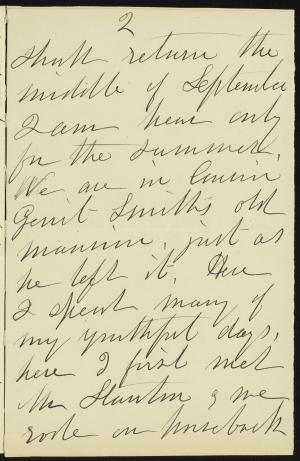 2
shall return the
middle of September
I am hear only
for the summer.
We are in Cousin
Gerrit Smith's old
mansion, just as
he left it. Here
I spent many of
my youthful days,
here I first met
Mr Stanton & we
rode on horseback